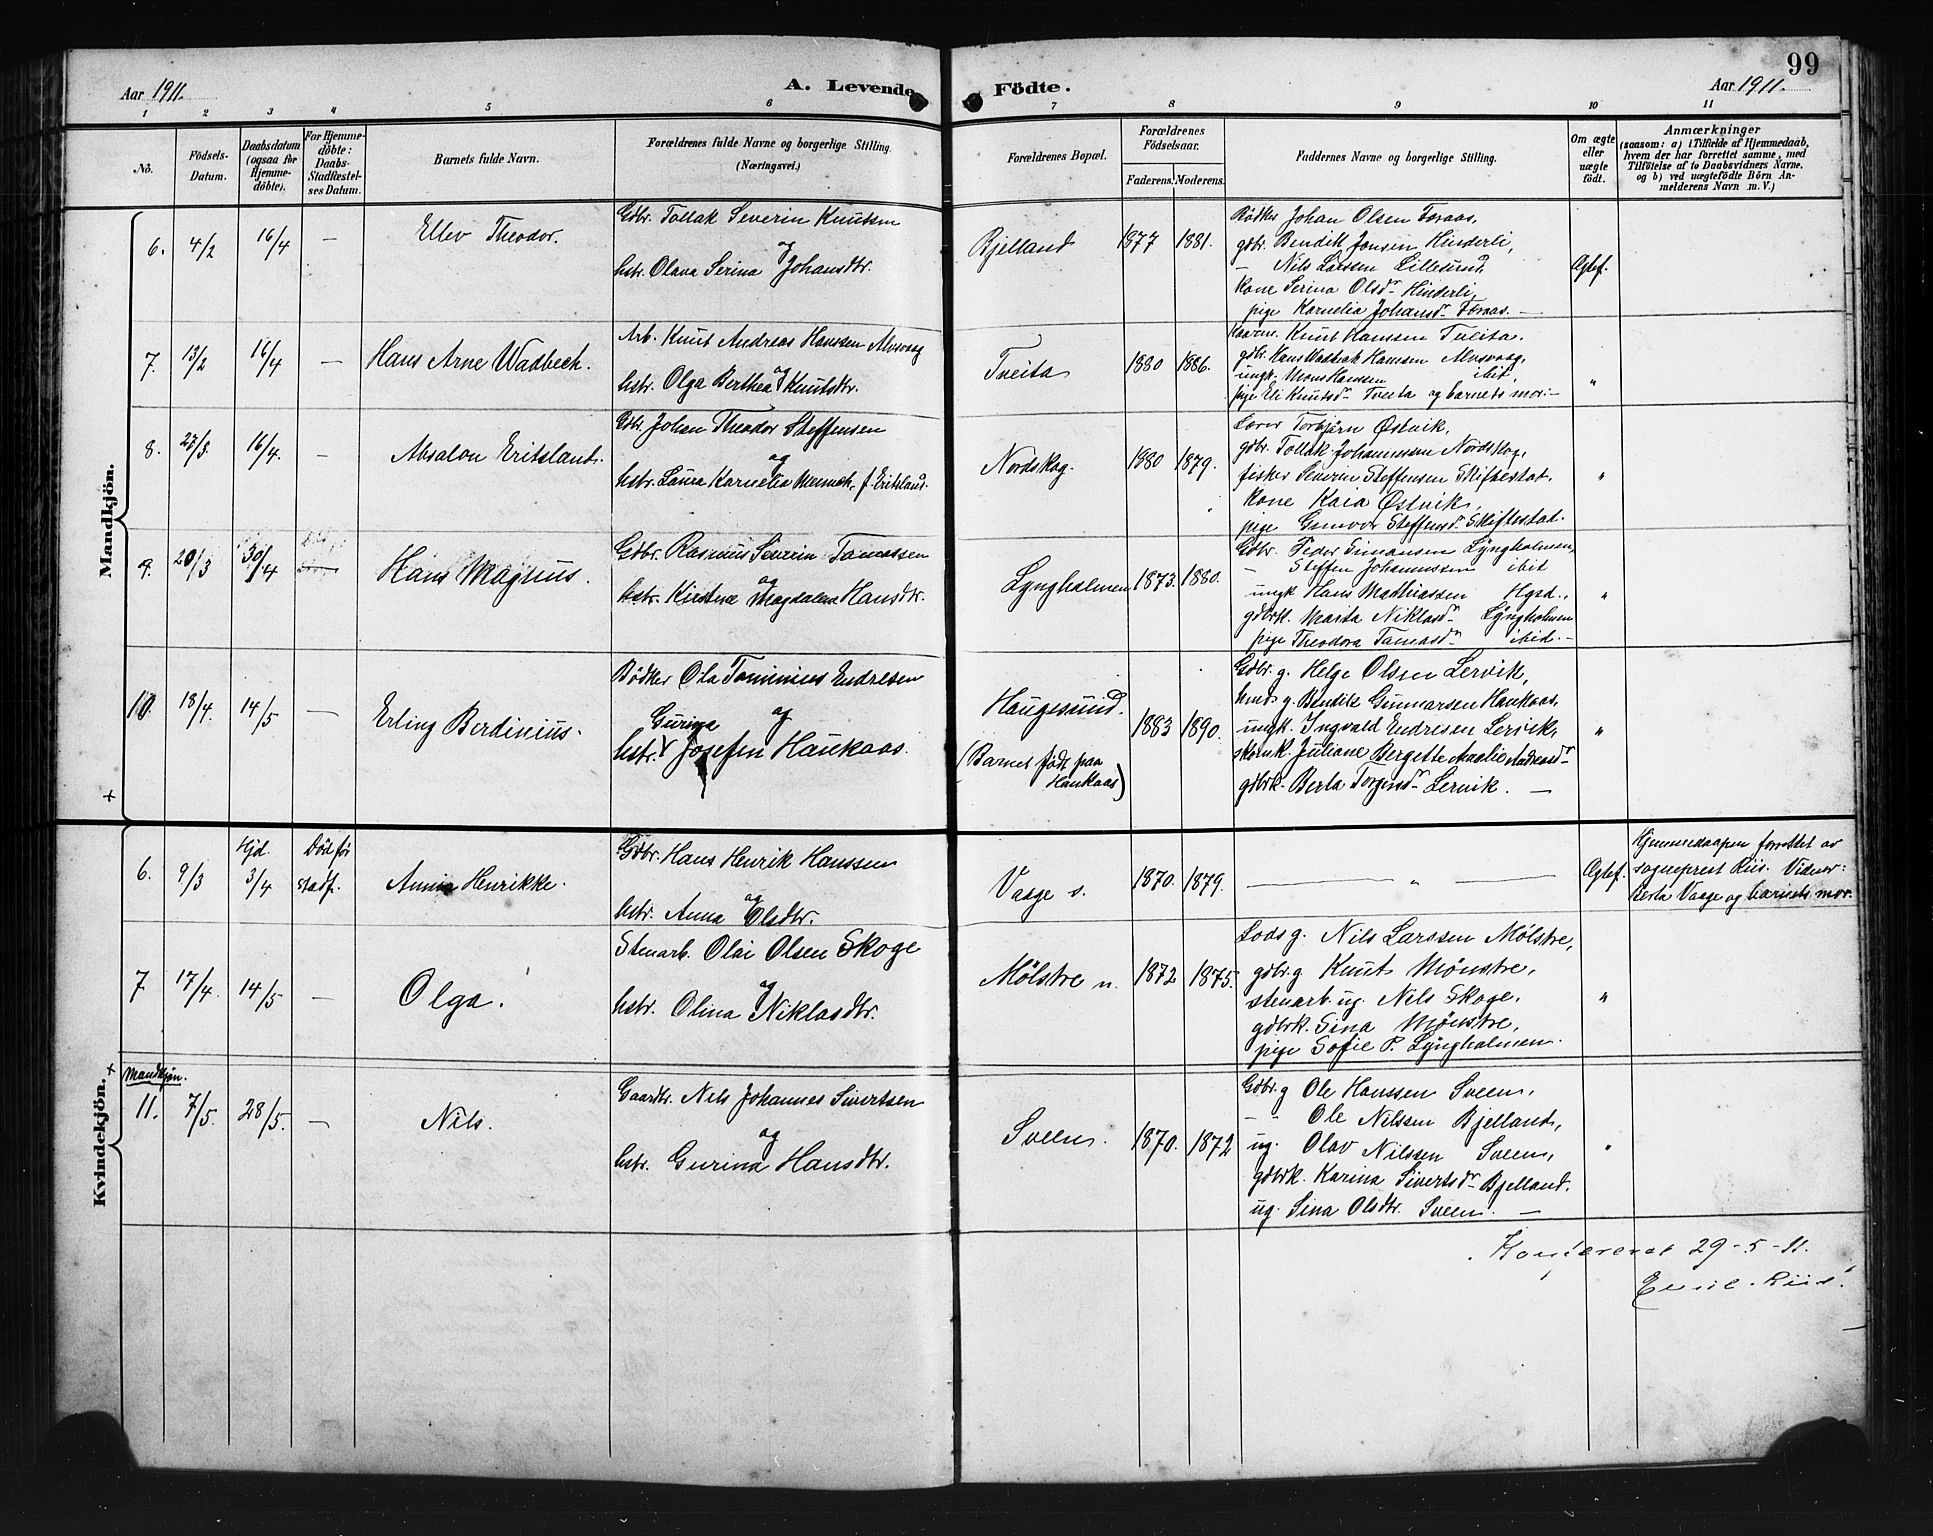 99
Aar 1911.
A. Levende Födte.
Aar 1911.
1 2 3 4 5 6 7 8 9 10 11
No.
Födsels-Datum.
Daabsdatum (ogsaa for Hjemmedöbte).
For Hjemmedöbte: Daabs-Stadfæstelses Datum.
Barnets fulde Navn.
Forældrenes fulde Navne og borgerlige Stilling.
(Næringsvei.)
Forældrenes Bopæl.
Forældrenes Födselsaar.
Faderens. Moderens.
Faddernes Navne og borgerlige Stilling.
Om ægte eller uægte födt.
Anmærkninger
(saasom: a) i Tilfælde af Hjemmedaab, hvem der har forrettet samme, med Tilföielse af to Daabsvidners Navne, og b) ved uægtefödte Börn Anmelderens Navn m. V.)
Mandkjön.
6. 4/2 16/4 — Ellev Theodor.
Gdbr. Tollak Severin Knutsen
og
hstr. Olava Serina Johansdtr.
Bjelland 1877 1881.
Bödker Johan Olsen Foraas,
gdbr. Bendik Jonsen Hinderli,
— Nils Larssen Lillesund,
kone Serina Olsdr Hinderli,
pige Kornelia Johansdr Foraas. —
Ægtef.
7. 13/2 16/4 — Hans Arne Wadbech.
Arb. Knut Andreas Hanssen Alvsvaag
og
hstr. Olga Berthea Knutsdtr.
Tveita 1880 1886.
Knut Hanssen Tveita.
gdbr. Hans Wadbech Hanssen Alvsvaag,
ungk. Mons Hanssen ibit,
pige Eli Knutsdr Tveita og barnets mor. —
"
8. 27/3. 16/4. — Absalon Eritsland.
Gdbr. Johan Theodor Steffensen
og
hstr. Laura Kornelia Wennech, f. Eritsland.
Nordskog. 1880 1879.
Lærer Torbjörn Østvik,
gdbr. Tollak Johannessen Nordskog,
fisker Severin Steffensen Skiftestat,
kone Kaia Østvik,
pige Gunvor Steffensdr Skiftestat.
"
9. 20/3 30/4 Hans Magnus.
Gdbr. Rasmus Severin Tomassen
og
hstr. Kirstine Magdalene Hansdtr.
Lyngholmen 1873. 1880.
Gdbr. Peder Simonsen Lyngholmen,
— Steffen Johannessen ibit
ungk Hans Mathiassen Hgsd.,
gdbrk. Marta Niklasdr Lyngholmen
pige Theodora Tomasdr ibid. —
"
10. 18/4. 14/5 — Erling Berdinius.
Bödker Ola Tominius Endresen
og
Gurina
hstr. Josefin Haukaas.
Haugesund.
(Barnet födt paa Haukaas)
1883 1890.
Gdbr. g. Helge Olsen Lervik,
hmd. g. Bendik Gunnarsen Haukaas,
ungk. Ingvald Endresen Lervik,
Juliane Bergitte Amalie Andreasdr
gdbrk. Berta Torgersdr Lervik. —
"
+
Kvindekjön.
6. 9/3 Hjd. 3/4 Död för stadf. Anna Henrikke.
Gdbr. Hans Henrik Hanssen
og
hstr. Anna Olsdtr.
Vaage s. 1870. 1879.
— " —
Ægtef.
Hjemmedaapen forrettet av
sogneprest Riis. Vidner:
Berta Vaage og barnets mor.
7 17/4. 14/5 — Olga.
Stenarb. Olai Olsen Skoge
og
hstr. Olina Niklasdtr.
Mölstre n. 1872 1875.
Lods g. Nils Larssen Mölstre,
gdbr. g Knut Mönstre,
stenarb. ug. Nils Skoge,
gdbrk. Sina Mönstre,
pige Sofie P. Lyngholmen.
"
+
Mandkjön.
11. 7/5. 28/5. — Nils.
Gaardbr. Nils Johannes Sivertsen
og
hstr. Gurina Hansdtr.
Sveen. 1870. 1872
Gdbr. g Ole Hanssen Sveen,
— Ole Nilssen Bjelland,
ug. Olav Nilssen Sveen,
gdbrk. Karina Sivertsdr Bjelland.
ug. Sina Olsdtr. Sveen. —
"
Konfereret 29-5-11.
Emil Riis.